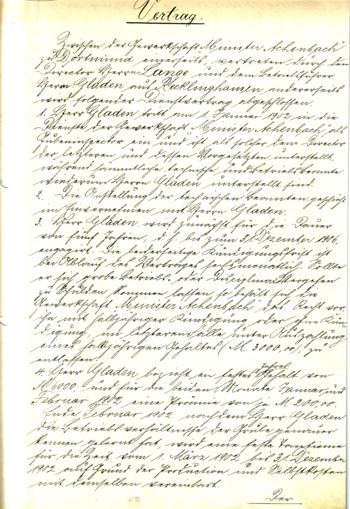 Vertrag.
Zwischen der Gewerkschaft Minister Achenbach
zu Dortmund einerseits, vertreten durch den
Director Herrn Lange und dem Betriebsführer
Herrn Gladen aus Recklinghausen andererseits
wird folgender Dienstvertrag abgeschlossen.
1. Herr Gladen tritt am 1. Januar 1902 in die
Dienste der Gewerkschaft Minister Achenbach als
Grubeninspector ein und ist als solcher dem Director
der letzteren und dessen Vorgesetzten unterstellt,
während sämmtliche technische und Betriebsbeamte
wiederum Herrn Gladen unterstellt sind.
2. Die Anstellung der technischen Beamten geschieht
im Einvernehmen mit Herrn Gladen.
3. Herr Gladen wird zunächst für die Dauer
von fünf Jahren, d. h. bis zum 31. Dezember 1906,
engagirt. Die Kündigungsfrist ist
bei Ablauf des Vertrages sechsmonatlich. Sollte
er sich grobe Betriebs- oder Disziplinarvergehen
zu Schulden kommen lassen, so behält sich die
Gewerkschaft Minister Achenbach das Recht vor,
ihn mit halbjähriger Kündigung oder ohne Kün-
digung, im letzteren Falle unter Auszahlung
eines halbjährigen Gehaltes (M. 3000,00), zu
entlassen.
4. Herr Gladen bezieht ein festes Gehalt von
M. 6000 und für die beiden Monate Januar und
Februar 1902 eine Prämie von je M. 200,00.
Ende Februar 1902 nachdem Herr Gladen
die Betriebsverhältnisse der Grube genauer
kennen gelernt hat, wird eine feste
für die Zeit vom 1. März 1902 bis 31. Dezember
1902 auf Grund der Production und Selbstkosten
mit demselben vereinbart.
Der